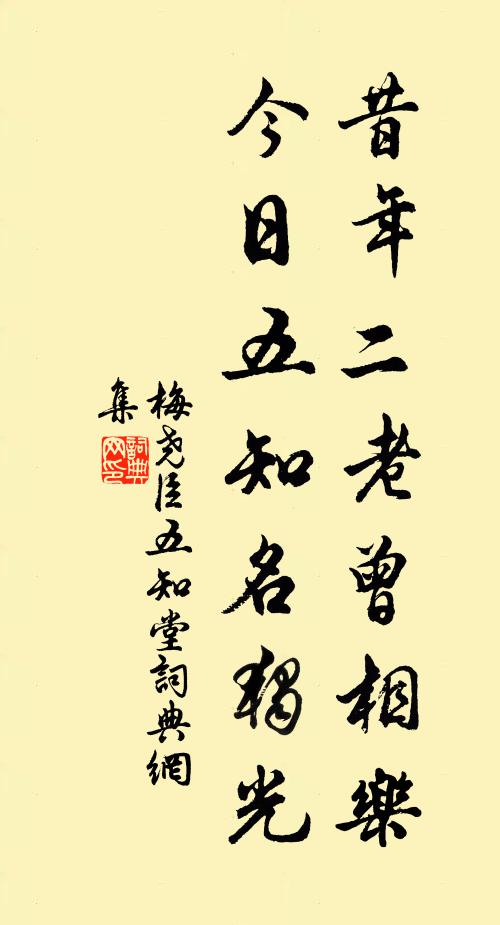 昔年二老曾相樂
今日五知名獨光
梅堯臣五知堂詞典網
集
詞典
网印